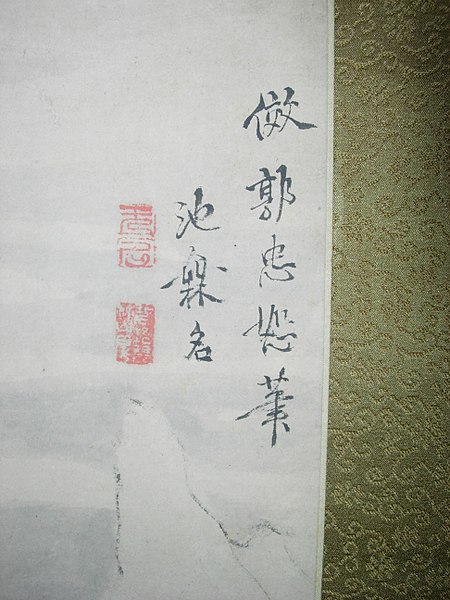 倣郭忠恕筆
池無名